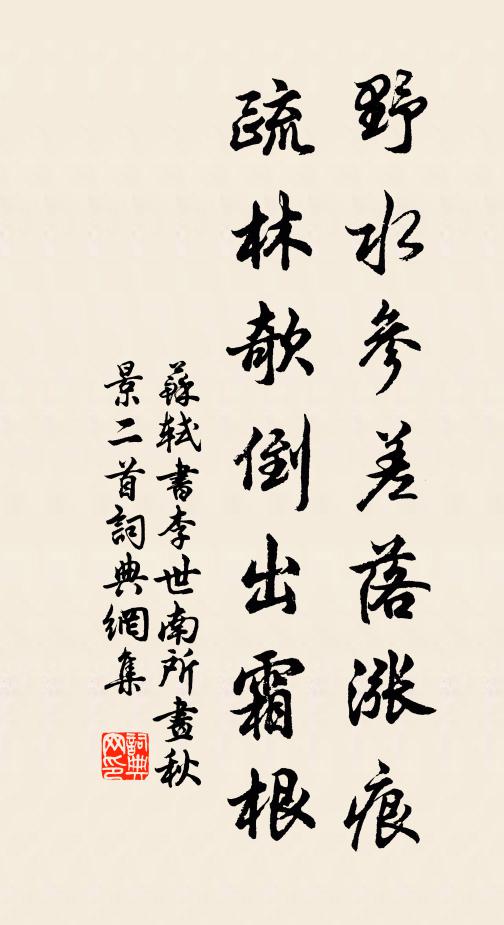 野水參差落漲痕
疏林欹倒出霜根
蘇軾書李世南所畫秋
景二首詞典網集
詞典
网印